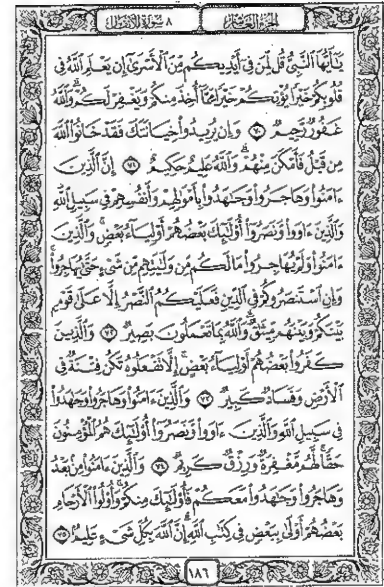 الجزء العاشر ٨ سورة الأنفال
يَٰٓأَيُّهَا ٱلنَّبِيُّ قُل لِّمَن فِيٓ أَيْدِيكُم مِّنَ ٱلْأَسْرَىٰٓ إِن يَعْلَمِ ٱللَّهُ فِي
قُلُوبِكُمْ خَيْرًا يُؤْتِكُمْ خَيْرًا مِّمَّآ أُخِذَ مِنكُمْ وَيَغْفِرْ لَكُمْ ۗ وَٱللَّهُ
غَفُورٌ رَّحِيمٌ ٧٠ وَإِن يُرِيدُوا۟ خِيَانَتَكَ فَقَدْ خَانُوا۟ ٱللَّهَ
مِن قَبْلُ فَأَمْكَنَ مِنْهُمْ ۗ وَٱللَّهُ عَلِيمٌ حَكِيمٌ ٧١ إِنَّ ٱلَّذِينَ
ءَامَنُوا۟ وَهَاجَرُوا۟ وَجَٰهَدُوا۟ بِأَمْوَٰلِهِمْ وَأَنفُسِهِمْ فِي سَبِيلِ ٱللَّهِ
وَٱلَّذِينَ ءَاوَوا۟ وَّنَصَرُوٓا۟ أُو۟لَٰٓئِكَ بَعْضُهُمْ أَوْلِيَآءُ بَعْضٍ ۚ وَٱلَّذِينَ
ءَامَنُوا۟ وَلَمْ يُهَاجِرُوا۟ مَا لَكُم مِّن وَلَٰيَتِهِم مِّن شَيْءٍ حَتَّىٰ يُهَاجِرُوا۟ ۚ
وَإِنِ ٱسْتَنصَرُوكُمْ فِي ٱلدِّينِ فَعَلَيْكُمُ ٱلنَّصْرُ إِلَّا عَلَىٰ قَوْمٍۭ
بَيْنَكُمْ وَبَيْنَهُم مِّيثَٰقٌ ۗ وَٱللَّهُ بِمَا تَعْمَلُونَ بَصِيرٌ ٧٢ وَٱلَّذِينَ
كَفَرُوا۟ بَعْضُهُمْ أَوْلِيَآءُ بَعْضٍ ۚ إِلَّا تَفْعَلُوهُ تَكُن فِتْنَةٌ فِي
ٱلْأَرْضِ وَفَسَادٌ كَبِيرٌ ٧٣ وَٱلَّذِينَ ءَامَنُوا۟ وَهَاجَرُوا۟ وَجَٰهَدُوا۟
فِي سَبِيلِ ٱللَّهِ وَٱلَّذِينَ ءَاوَوا۟ وَّنَصَرُوٓا۟ أُو۟لَٰٓئِكَ هُمُ ٱلْمُؤْمِنُونَ
حَقًّا ۚ لَّهُم مَّغْفِرَةٌ وَرِزْقٌ كَرِيمٌ ٧٤ وَٱلَّذِينَ ءَامَنُوا۟ مِنۢ بَعْدُ
وَهَاجَرُوا۟ وَجَٰهَدُوا۟ مَعَكُمْ فَأُو۟لَٰٓئِكَ مِنكُمْ ۚ وَأُو۟لُوا۟ ٱلْأَرْحَامِ
بَعْضُهُمْ أَوْلَىٰ بِبَعْضٍ فِي كِتَٰبِ ٱللَّهِ ۗ إِنَّ ٱللَّهَ بِكُلِّ شَيْءٍ عَلِيمٌۢ ٧٥
١٨٦